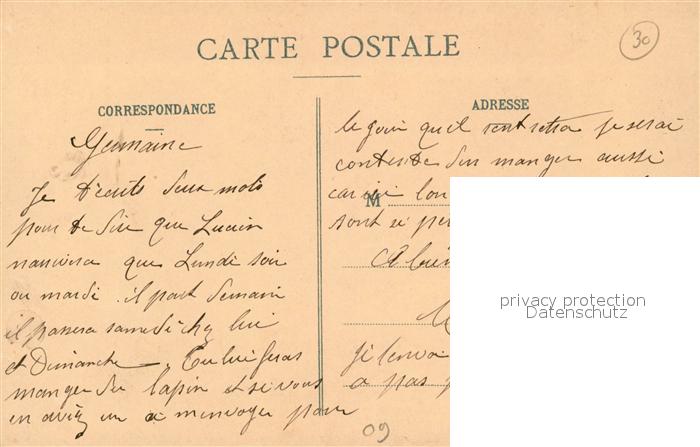 CARTE POSTALE
30
CORRESPONDANCE
Germaine
Je t'écrits deux mots
pour te dire que Lucien
narrivera que Lundi soir
ou mardi il part demain
il passera samedi chez lui
et Dimanche Tu lui feras
manger du lapin et si vous
en aviez un a menvoyer pour
ADRESSE
le jour qu'il rentretra je serai
contente d'en manger aussi
car ici lon
M
sont si
A bien
Je tenvoi
a pas
09
privacy protection
Datenschutz